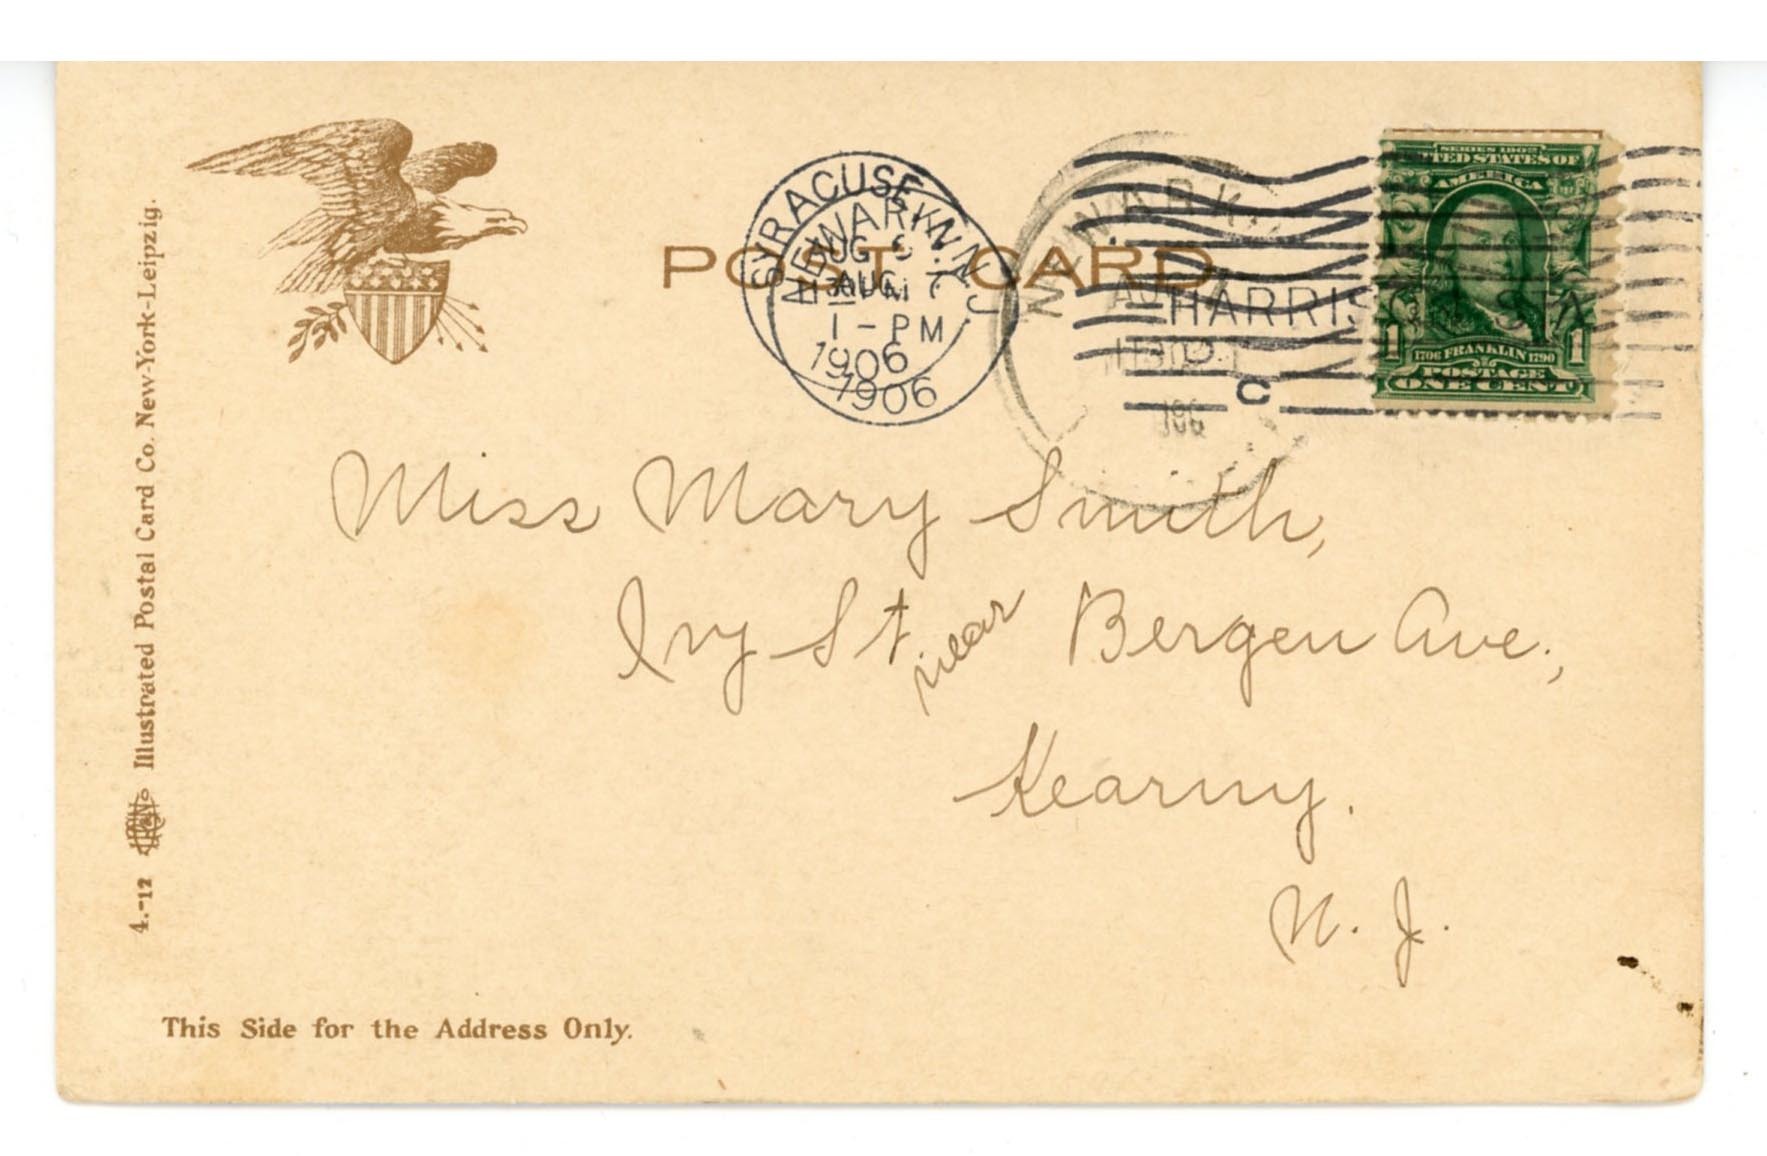 POST CARD
SYRACUSE, N.Y.
1906
NEWARK, N.J.
AUG 7
1 - PM
1906
NEWARK,
HARRIS
C
SERIES 1902
UNITED STATES OF
AMERICA
1 1
1706 FRANKLIN 1790
POSTAGE
ONE CENT
Miss Mary Smith,
Ivy St near Bergen Ave.,
Kearny.
N. J.
4.-12 Illustrated Postal Card Co. New-York-Leipzig.
This Side for the Address Only.